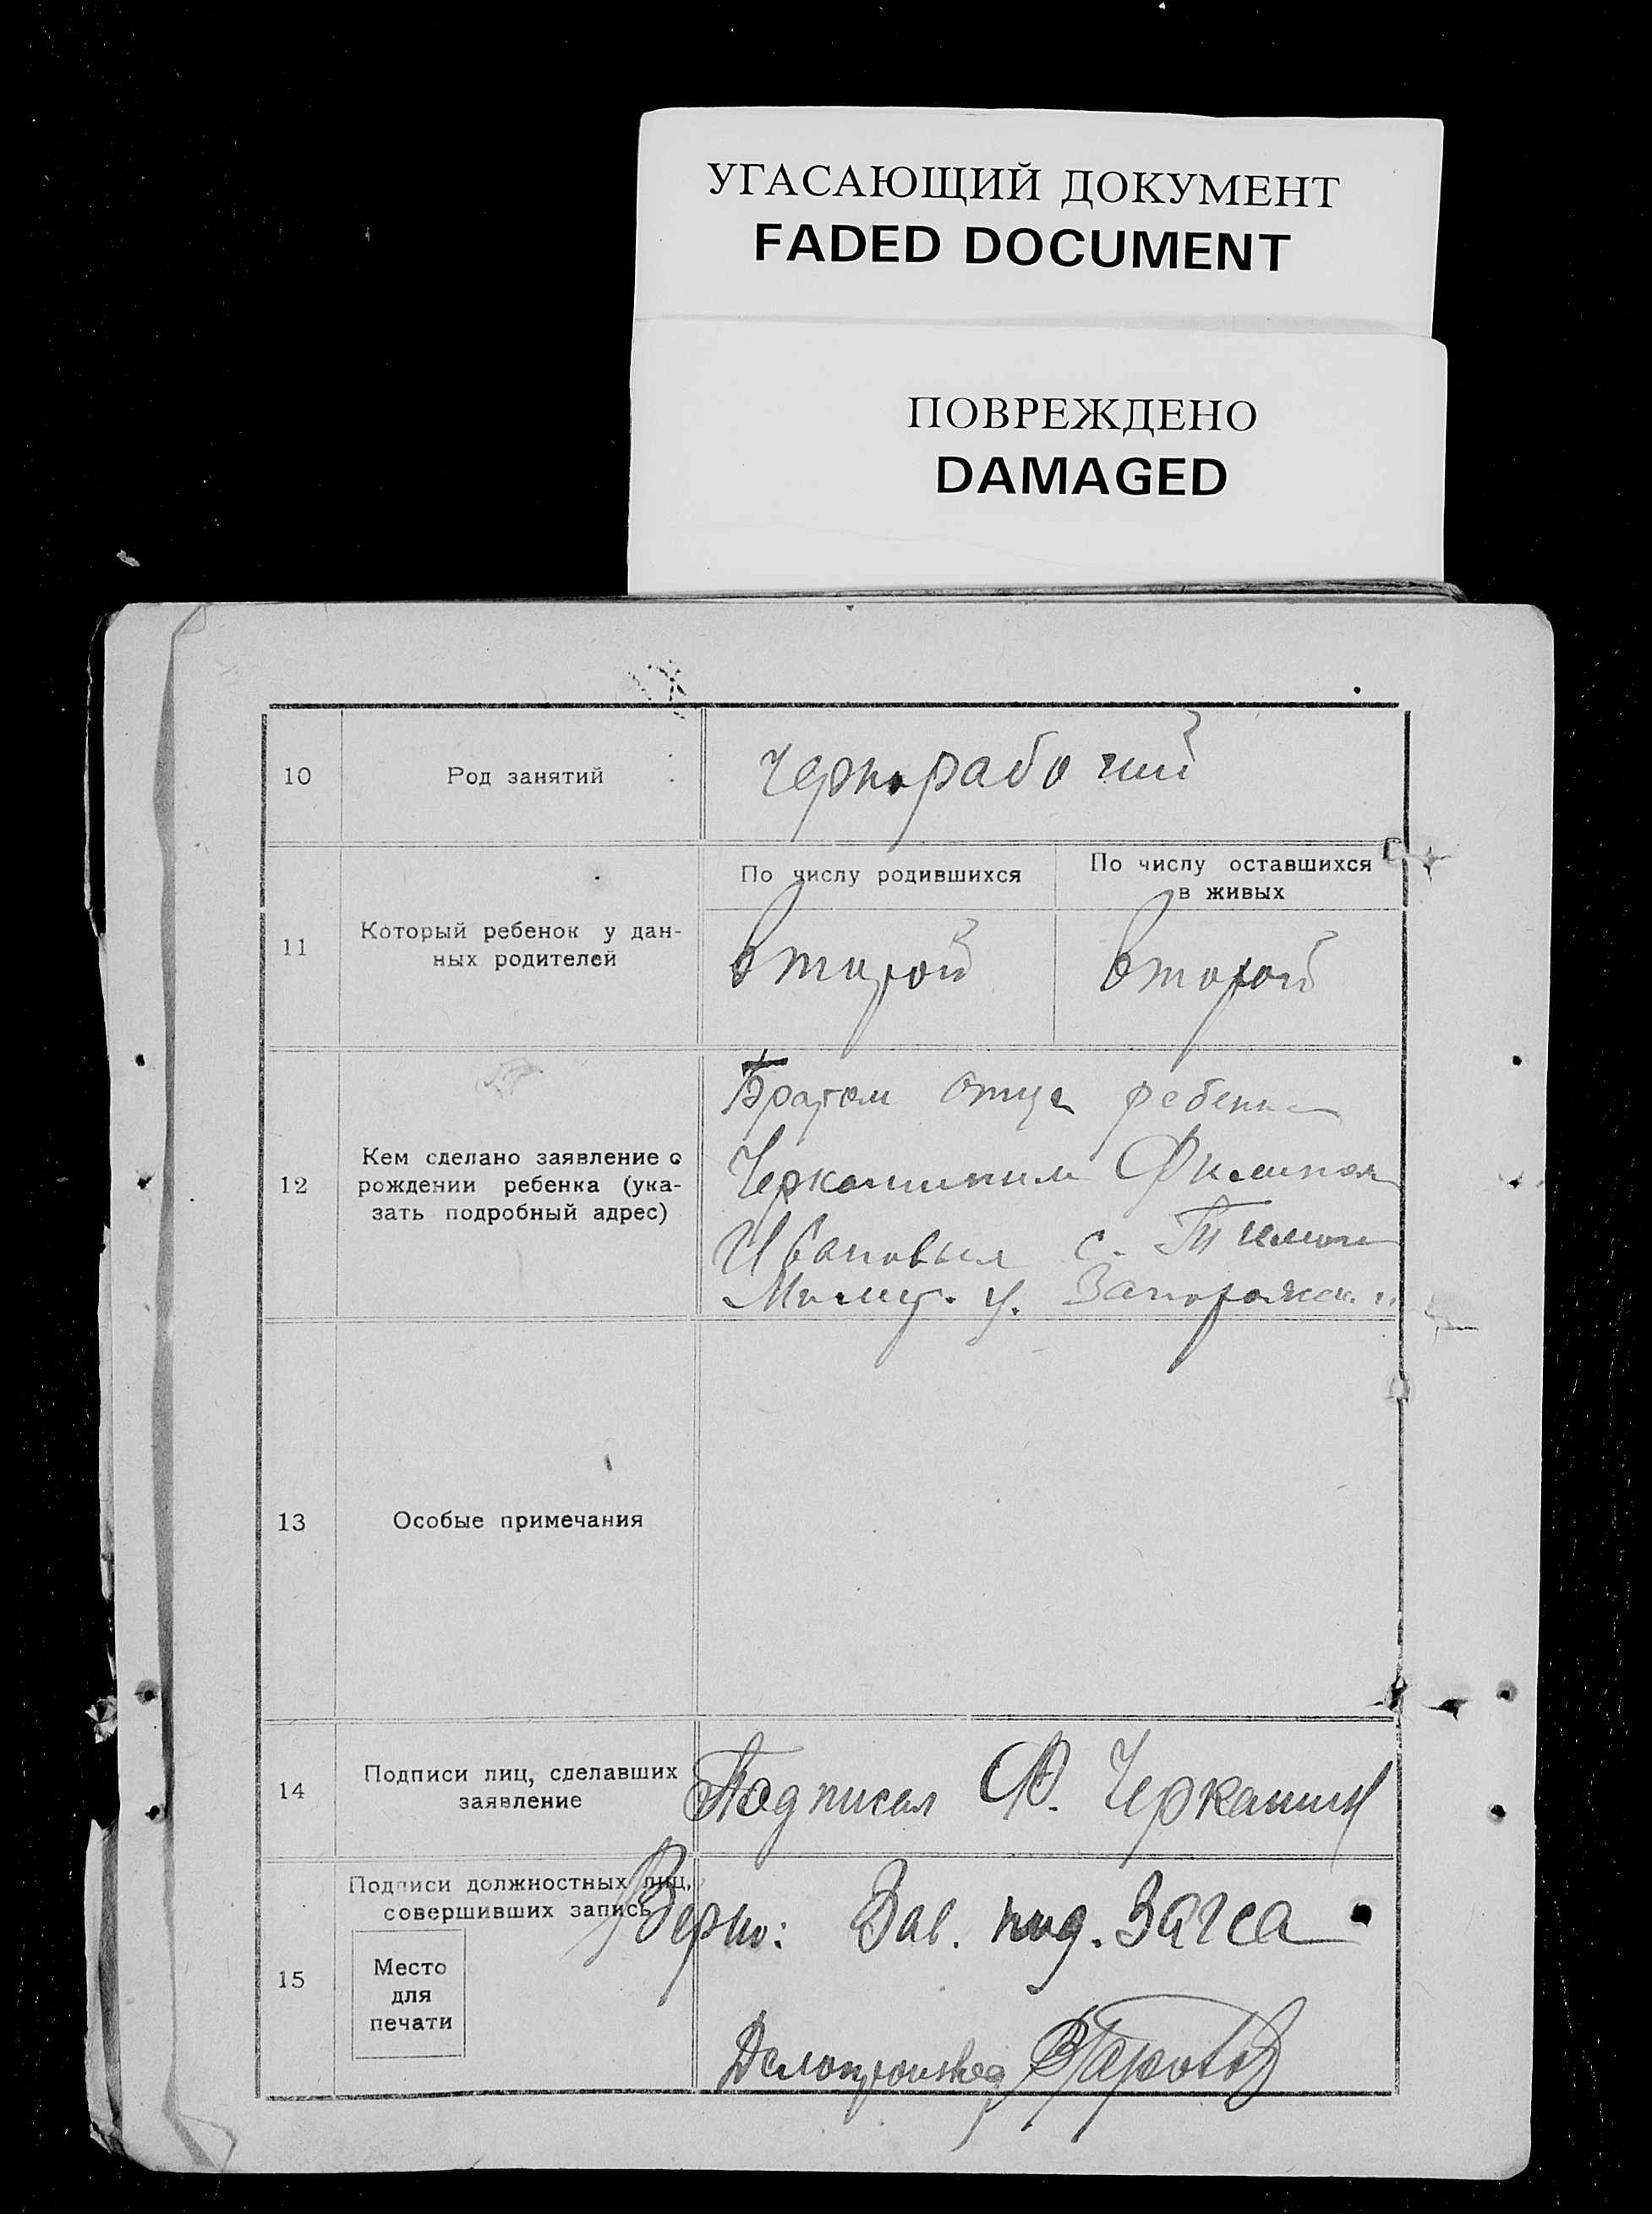 УГАСАЮЩИЙ ДОКУМЕНТ
FADED DOCUMENT
ПОВРЕЖДЕНО
DAMAGED
10 Род занятий Чернорабочий
По числу родившихся
По числу оставшихся
в живых
11 Который ребенок у дан-
ных родителей
второй второй
12 Кем сделано заявление о
рождении ребенка (ука-
зать подробный адрес)
Братом отца ребенка
Черкашиным
Ивановым с.
13 Особые примечания
14 Подписи лиц, сделавших
заявление
Подписал Ф. Черкашин
15 Подписи должностных лиц,
совершивших запись
Верно: Зав. под. Загса
Место
для
печати
Делопроизвод